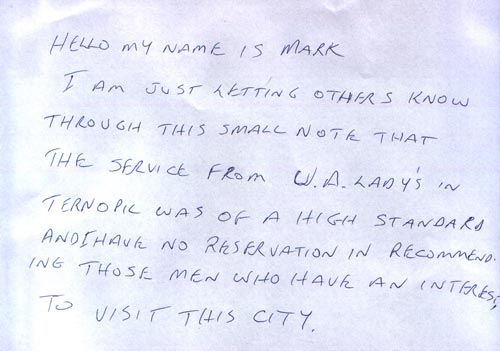 HELLO MY NAME IS MARK
I AM JUST LETTING OTHERS KNOW
THROUGH THIS SMALL NOTE THAT
THE SERVICE FROM W.A. LADY'S IN
TERNOPIL WAS OF A HIGH STANDARD
AND I HAVE NO RESERVATION IN RECOMMEND-
ING THOSE MEN WHO HAVE AN INTEREST,
TO VISIT THIS CITY.